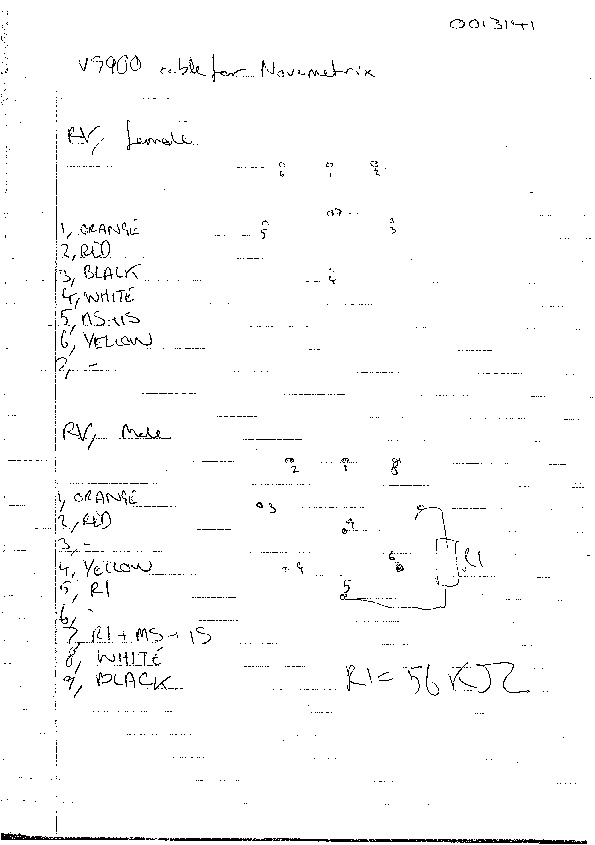 0013141
V3900 cable for Novametrix
RV, female
6 1 2
7
5 3
4
1, ORANGE
2, RED
3, BLACK
4, WHITE
5, MS+IS
6, YELLOW
7, -
RV, Male
2 1 8
3
9
7
4 6
5
R1
1, ORANGE
2, RED
3, -
4, YELLOW
5, R1
6, -
7, R1 + MS + IS
8, WHITE
9, BLACK
R1 = 56 KΩ